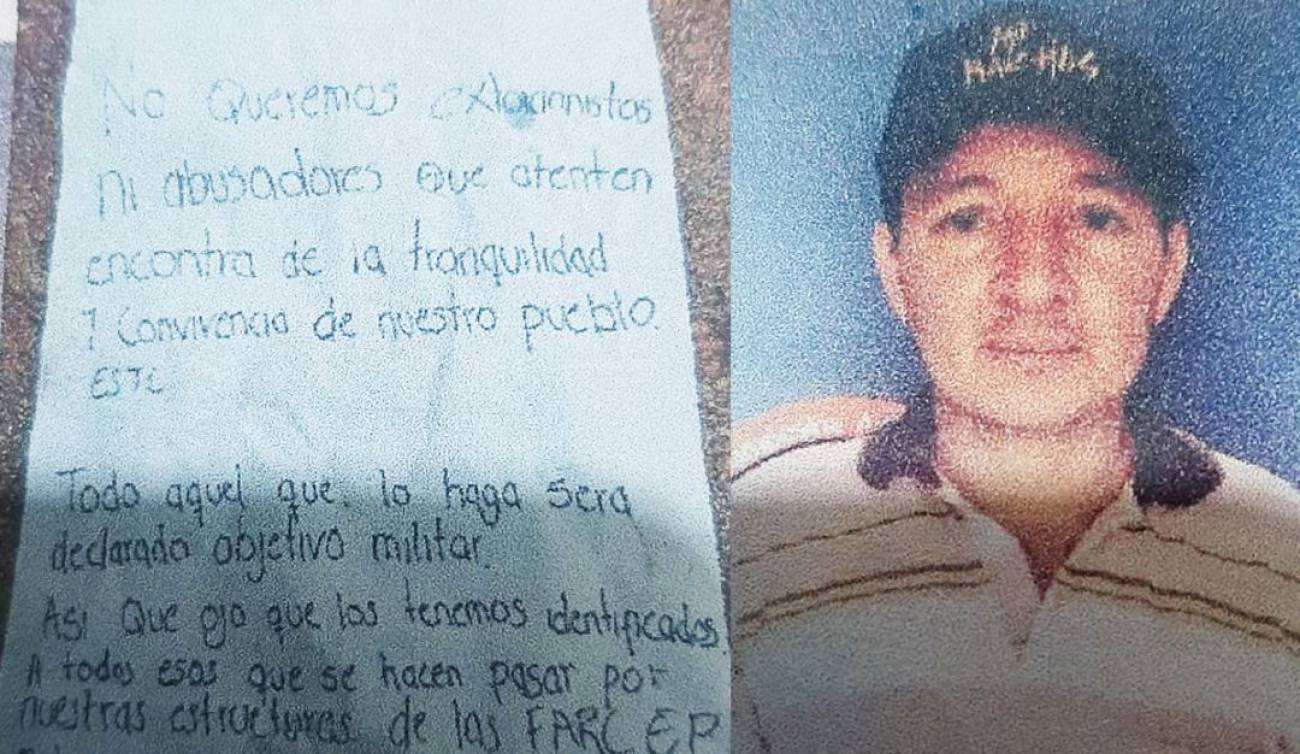 No Queremos extorsionistas
Ni abusadores Que atenten
encontra de la tranquilidad
y Convivencia de nuestro pueblo.
ESTE
Todo aquel que. lo haga sera
declarado objetivo militar.
Asi Que ojo que los tenemos identificados.
A todos esos que se hacen pasar por
nuestras estructuras de las FARC EP